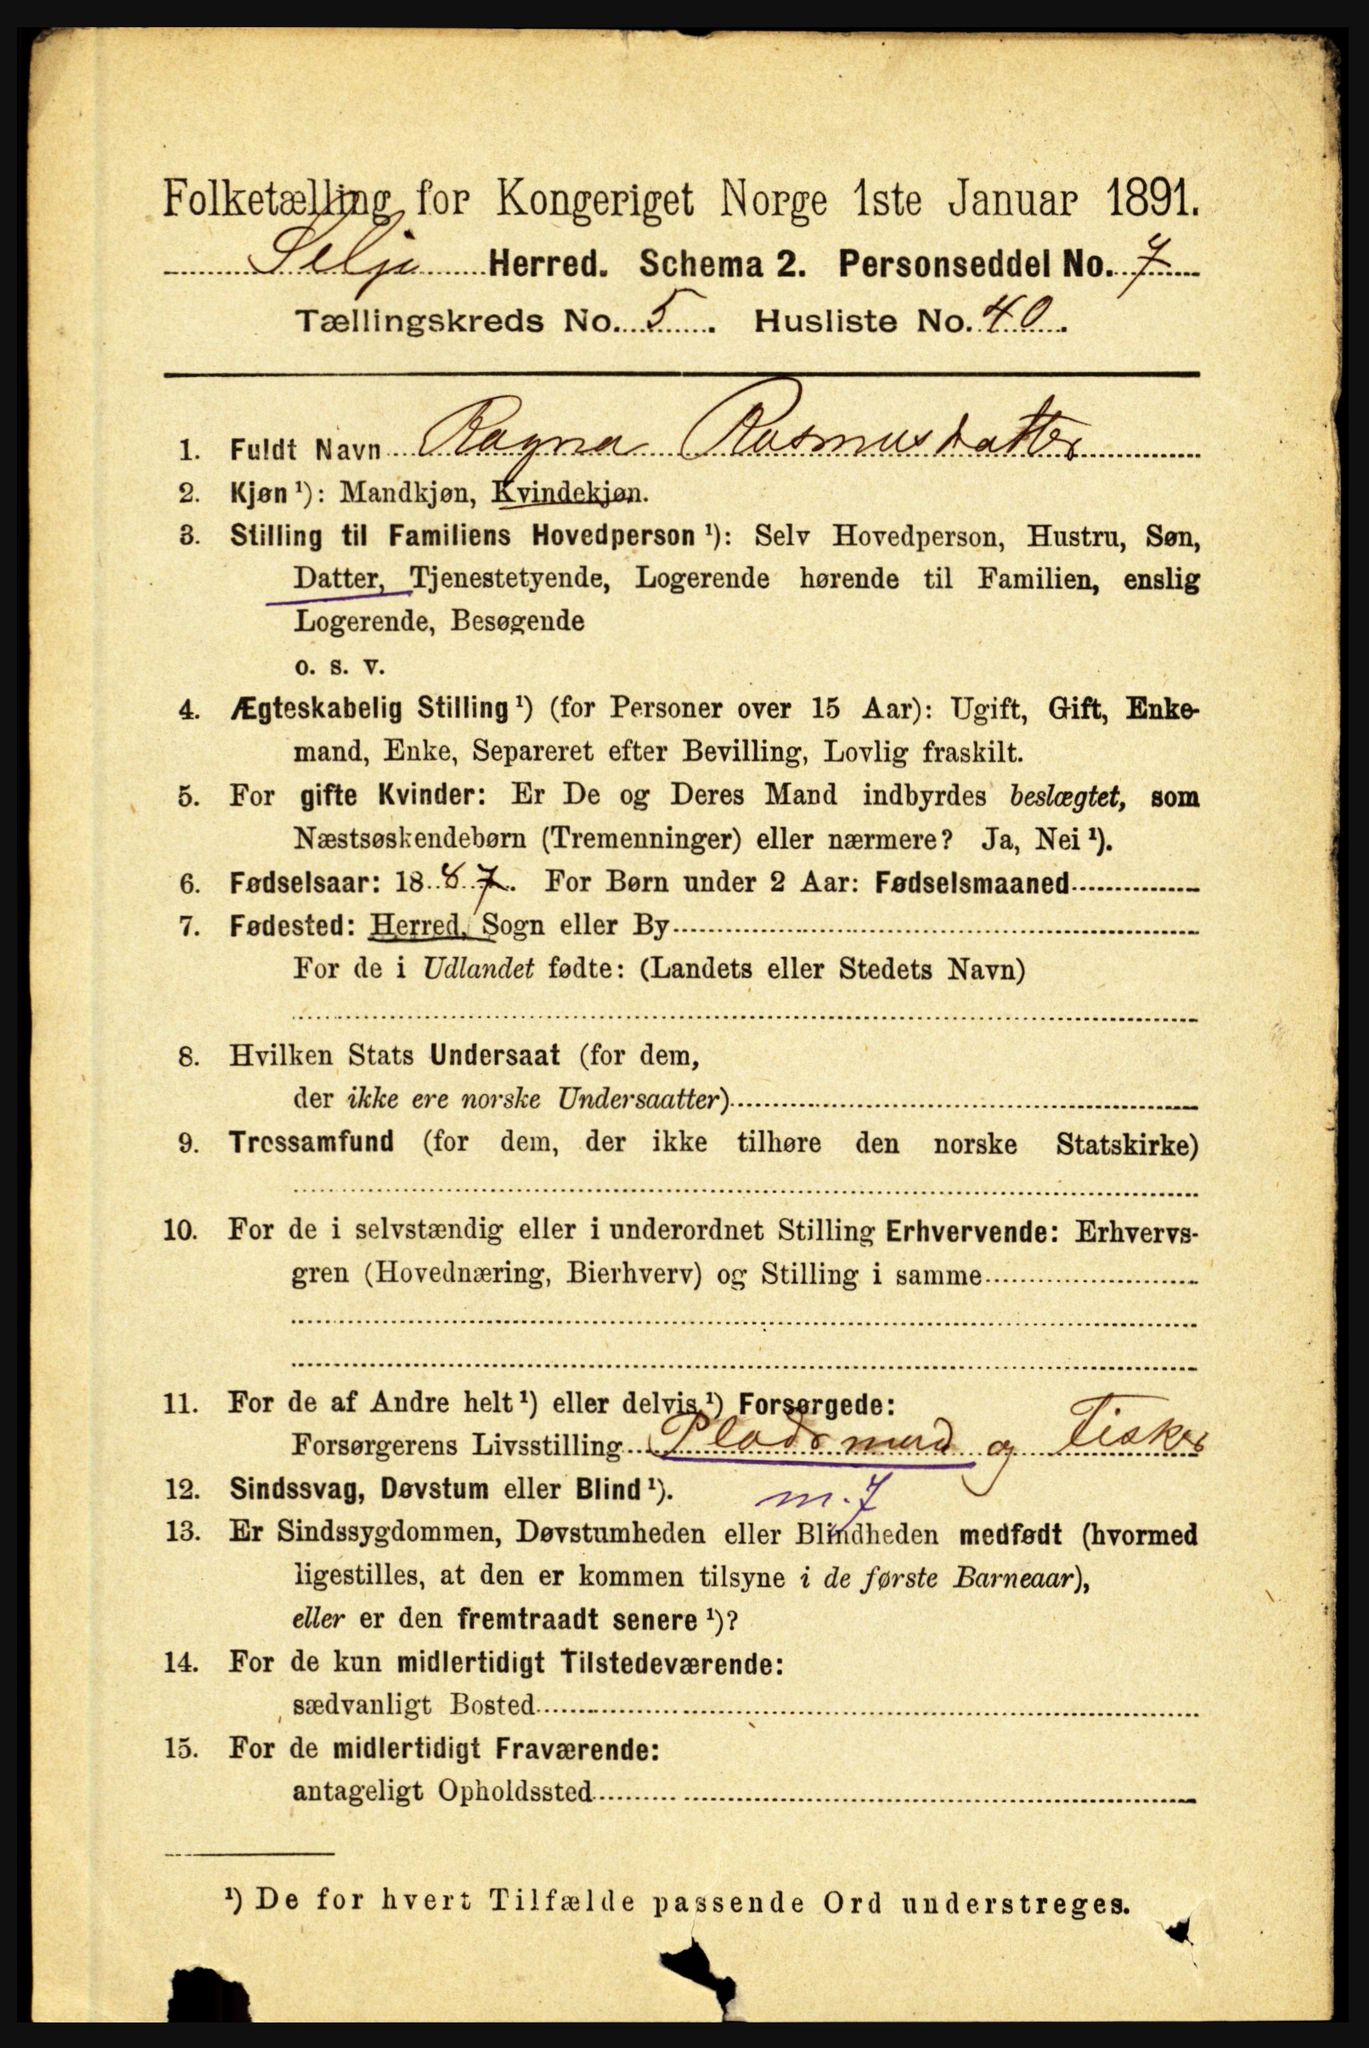 Folketælling for Kongeriget Norge 1ste Januar 1891.
Selje Herred. Schema 2. Personseddel No. 7
Tællingskreds No. 5. Husliste No. 40.
1. Fuldt Navn Ragna Rasmusdatter
2. Kjøn ¹): Mandkjøn, Kvindekjøn.
3. Stilling til Familiens Hovedperson ¹): Selv Hovedperson, Hustru, Søn,
Datter, Tjenestetyende, Logerende hørende til Familien, enslig
Logerende, Besøgende
o. s. v.
4. Ægteskabelig Stilling ¹) (for Personer over 15 Aar): Ugift, Gift, Enke-
mand, Enke, Separeret efter Bevilling, Lovlig fraskilt.
5. For gifte Kvinder: Er De og Deres Mand indbyrdes beslægtet, som
Næstsøskendebørn (Tremenninger) eller nærmere? Ja, Nei ¹).
6. Fødselsaar: 1887. For Børn under 2 Aar: Fødselsmaaned
7. Fødested: Herred, Sogn eller By
For de i Udlandet fødte: (Landets eller Stedets Navn)
8. Hvilken Stats Undersaat (for dem,
der ikke ere norske Undersaatter)
9. Trossamfund (for dem, der ikke tilhøre den norske Statskirke)
10. For de i selvstændig eller i underordnet Stilling Erhvervende: Erhvervs-
gren (Hovednæring, Bierhverv) og Stilling i samme
11. For de af Andre helt ¹) eller delvis ¹) Forsørgede:
Forsørgerens Livsstilling Pladsmand og Fisker
12. Sindssvag, Døvstum eller Blind ¹). m. 7
13. Er Sindssygdommen, Døvstumheden eller Blindheden medfødt (hvormed
ligestilles, at den er kommen tilsyne i de første Barneaar),
eller er den fremtraadt senere ¹)?
14. For de kun midlertidigt Tilstedeværende:
sædvanligt Bosted
15. For de midlertidigt Fraværende:
antageligt Opholdssted
¹) De for hvert Tilfælde passende Ord understreges.